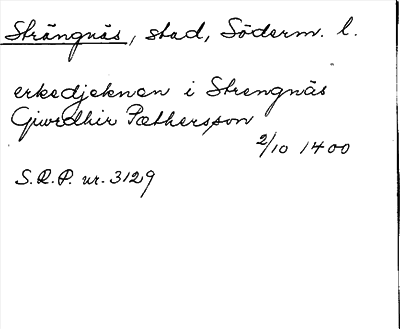 Strängnäs, stad, Söderm. l.
erkedjeknen i Strengnäs
Giurdhir Pæthersson
2/10 1400
S.R.P. nr. 3129